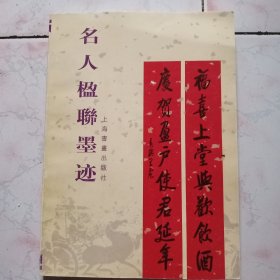 名人楹聯墨迹
上海書畫出版社
福喜上堂與歡飲酒
慶賀盈户使君延年